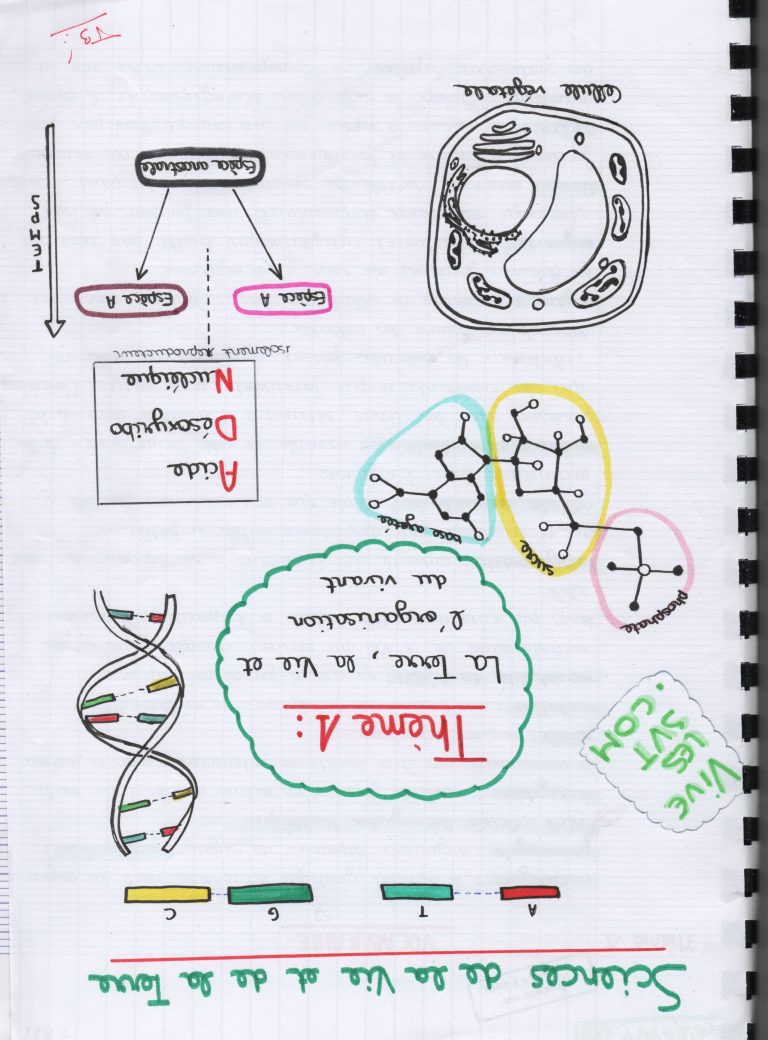 Sciences de la Vie et de la Terre
A T G C
VIVE
LES
SVT
.COM
Thème 1 :
La Terre, la Vie et
l'organisation
du vivant
phosphate
sucre
base azotée
Acide
Désoxyribo
Nucléique
isolement reproducteur
Espèce A Espèce A
Espèce ancestrale
TEMPS
Cellule végétale
TB !